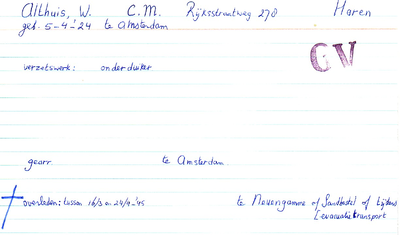 Althuis, W. C.M. Rijksstraatweg 278 Haren
geb. 5-4-'24 te Amsterdam
GV
verzetswerk: onderduiker
gearr. te Amsterdam.
overleden: tussen 16/3 en 24/4-'45 te Neuengamme of Sandbostel of tijdens
evacuatietransport